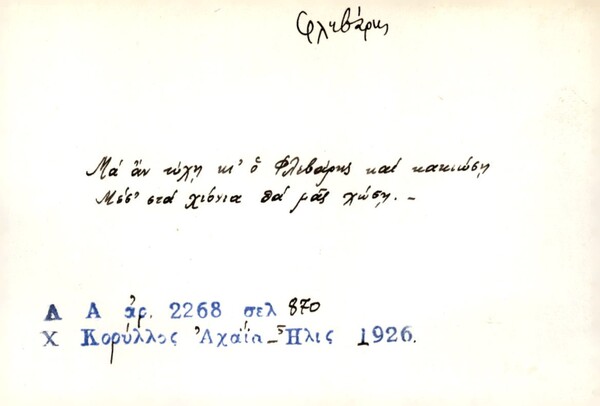 Φλεβάρης
Μά ἄν τύχῃ κι' ὁ Φλεβάρης καί κακιώσῃ
Μέσ' στά χιόνια θά μᾶς χώσῃ. –
Λ Α ἀρ. 2268 σελ 870
Χ Κορύλλος Ἀχαΐα-Ἦλις 1926.